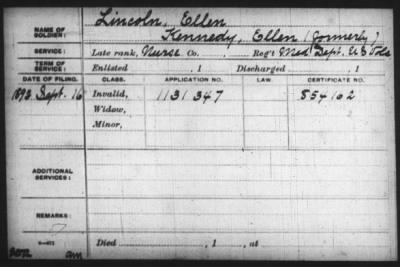 NAME OF SOLDIER: Lincoln, Ellen
Kennedy, Ellen (formerly)
SERVICE: Late rank, Nurse Co. Reg't Med Dept. U S Vols
TERM OF SERVICE: Enlisted , 1 Discharged , 1
DATE OF FILING. CLASS. APPLICATION NO. LAW. CERTIFICATE NO.
1892 Sept. 16 Invalid, 1131 347 854162
Widow,
Minor,
ADDITIONAL SERVICES:
REMARKS:
Died , 1 , at